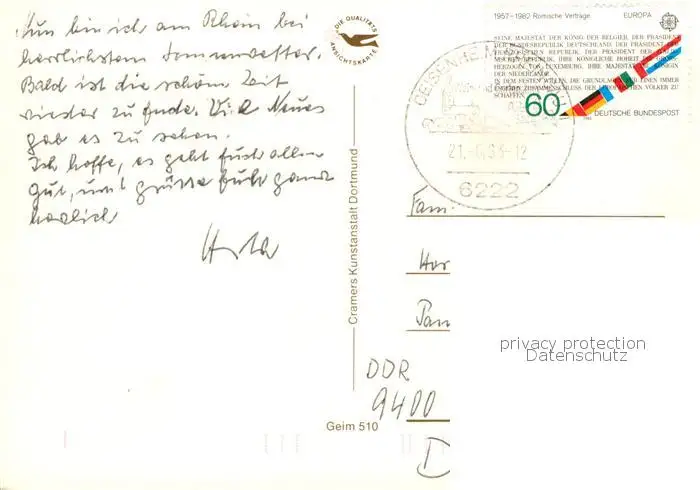 Nun bin ich am Rhein bei
herrlichstem Sommerwetter.
Bald ist die schöne Zeit
wieder zu Ende. Viel Neues
gab es zu sehen.
Ich hoffe, es geht Euch allen
gut, und grüsse Euch ganz
herzlich
DIE QUALITÄTS
ANSICHTSKARTE
Cramers Kunstanstalt Dortmund
Geim 510
1957–1982 Römische Verträge EUROPA
SEINE MAJESTÄT DER KÖNIG DER BELGIER, DER PRÄSIDENT
DER BUNDESREPUBLIK DEUTSCHLAND, DER PRÄSIDENT
REPUBLIK, DER PRÄSIDENT DER
IHRE KÖNIGLICHE HOHEIT
HERZOGIN VON LUXEMBURG, IHRE MAJESTÄT KÖNIGIN
DER NIEDERLANDE
IN DEM FESTEN WILLEN, DIE GRUNDLAGEN EINEN IMMER
ENGEREN ZUSAMMENSCHLUSS DER EUROPÄISCHEN VÖLKER ZU
SCHAFFEN
60 DEUTSCHE BUNDESPOST
GEISENHEIM
6222
Fam.
Hor
DDR
9400
D
privacy protection
Datenschutz